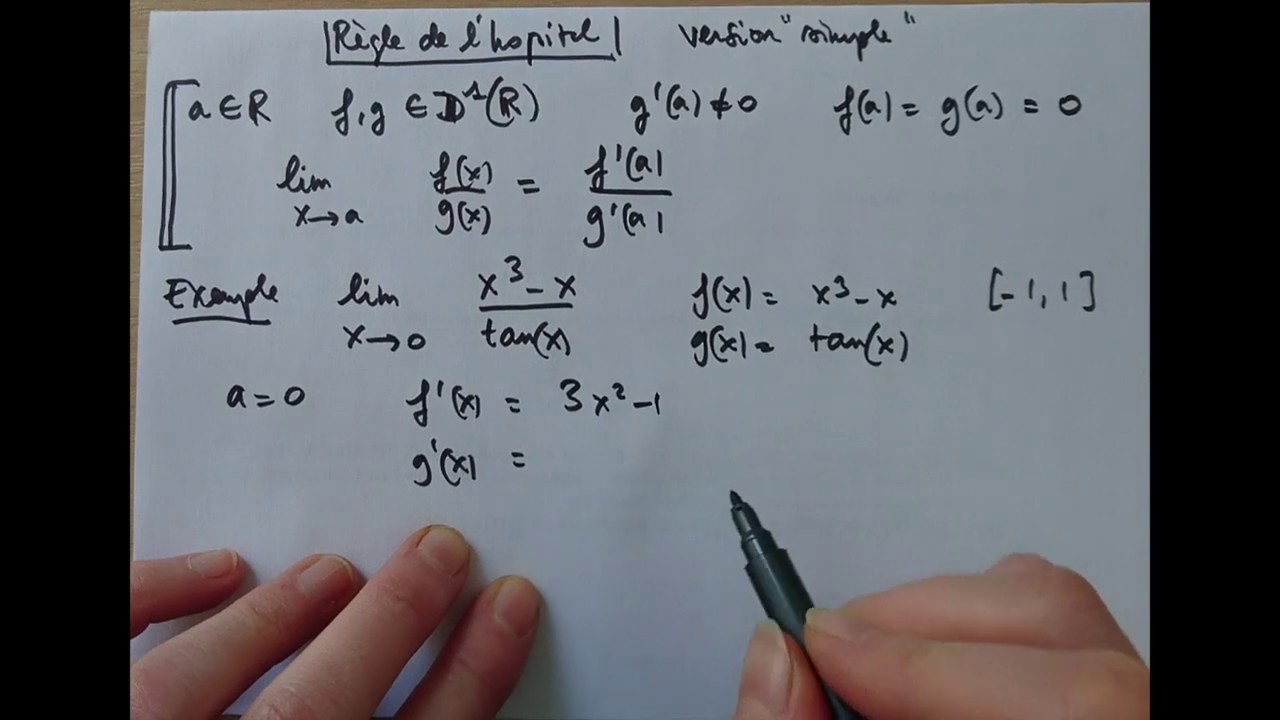 Règle de l'hopital version "simple"
a ∈ R f, g ∈ D¹(R) g'(a) ≠ 0 f(a) = g(a) = 0
lim x→a f(x)/g(x) = f'(a)/g'(a)
Example lim x→0 x³ - x / tan(x) f(x) = x³ - x [-1, 1]
g(x) = tan(x)
a = 0 f'(x) = 3x² - 1
g'(x) =